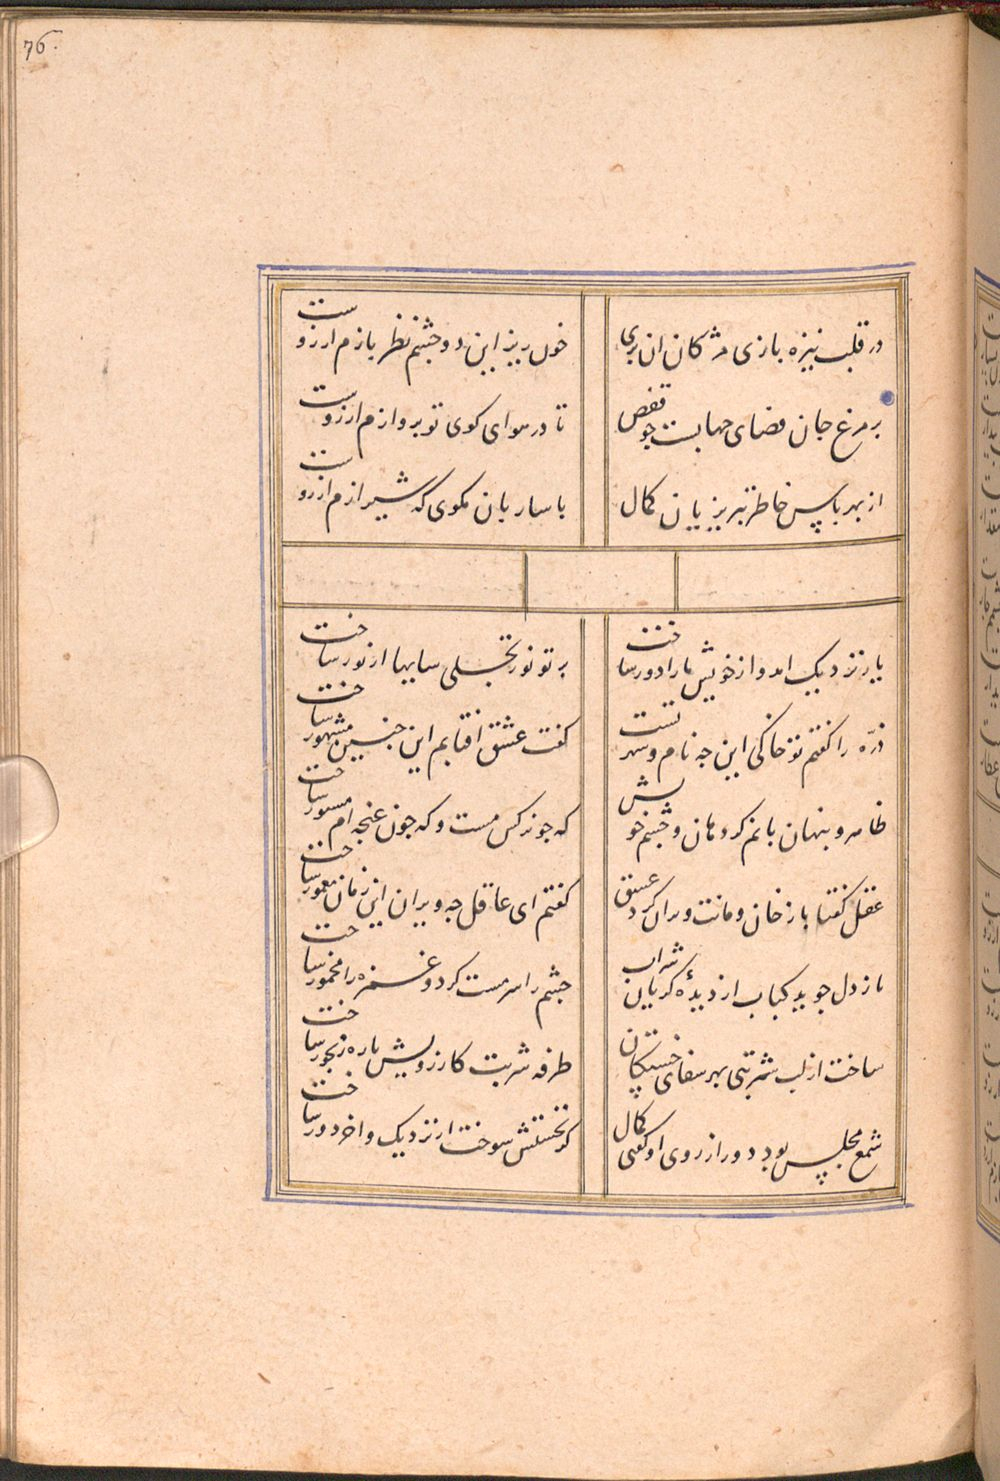 76
در قلب نیزه بازی مژکان ان پری
خون ریز این دو چشم نظر بازم ارزوست
بر مرغ جان فضای جهانست چو قفص
تا در هوای کوی تو پروازم ارزوست
از بهر پاس خاطر تبریزیان کمال
با ساربان مکوی که شیرازم ارزوست
یار نزدیک امد و از خویش ما را دور ساخت
پرتو نور تجلی سایها از نور ساخت
ذرّه را کفتم تو خاکی این چه نام و شهرتست
کفت عشق افتابم این چنین مشهور ساخت
ظاهر و پنهان بانم کرد و چشم خویش
که چو نرکس مست و که چون غنچه ام مستور ساخت
عقل کفتا بار خان و مانت ویران کرد عشق
کفتم ای عاقل چه ویران این زمان معمور ساخت
ناز دل جوید کباب از دیدهٔ کریان شراب
چشم را سرمست کرد و غمزه را مخمور ساخت
ساخت از لب شربتی بهر شفای خستکان
طرفه شربت کارزویش باره رنجور ساخت
شمع مجلس بود دور از روی او کفتی کمال
کز نخستش سوخت از نزدیک و اخر دور ساخت